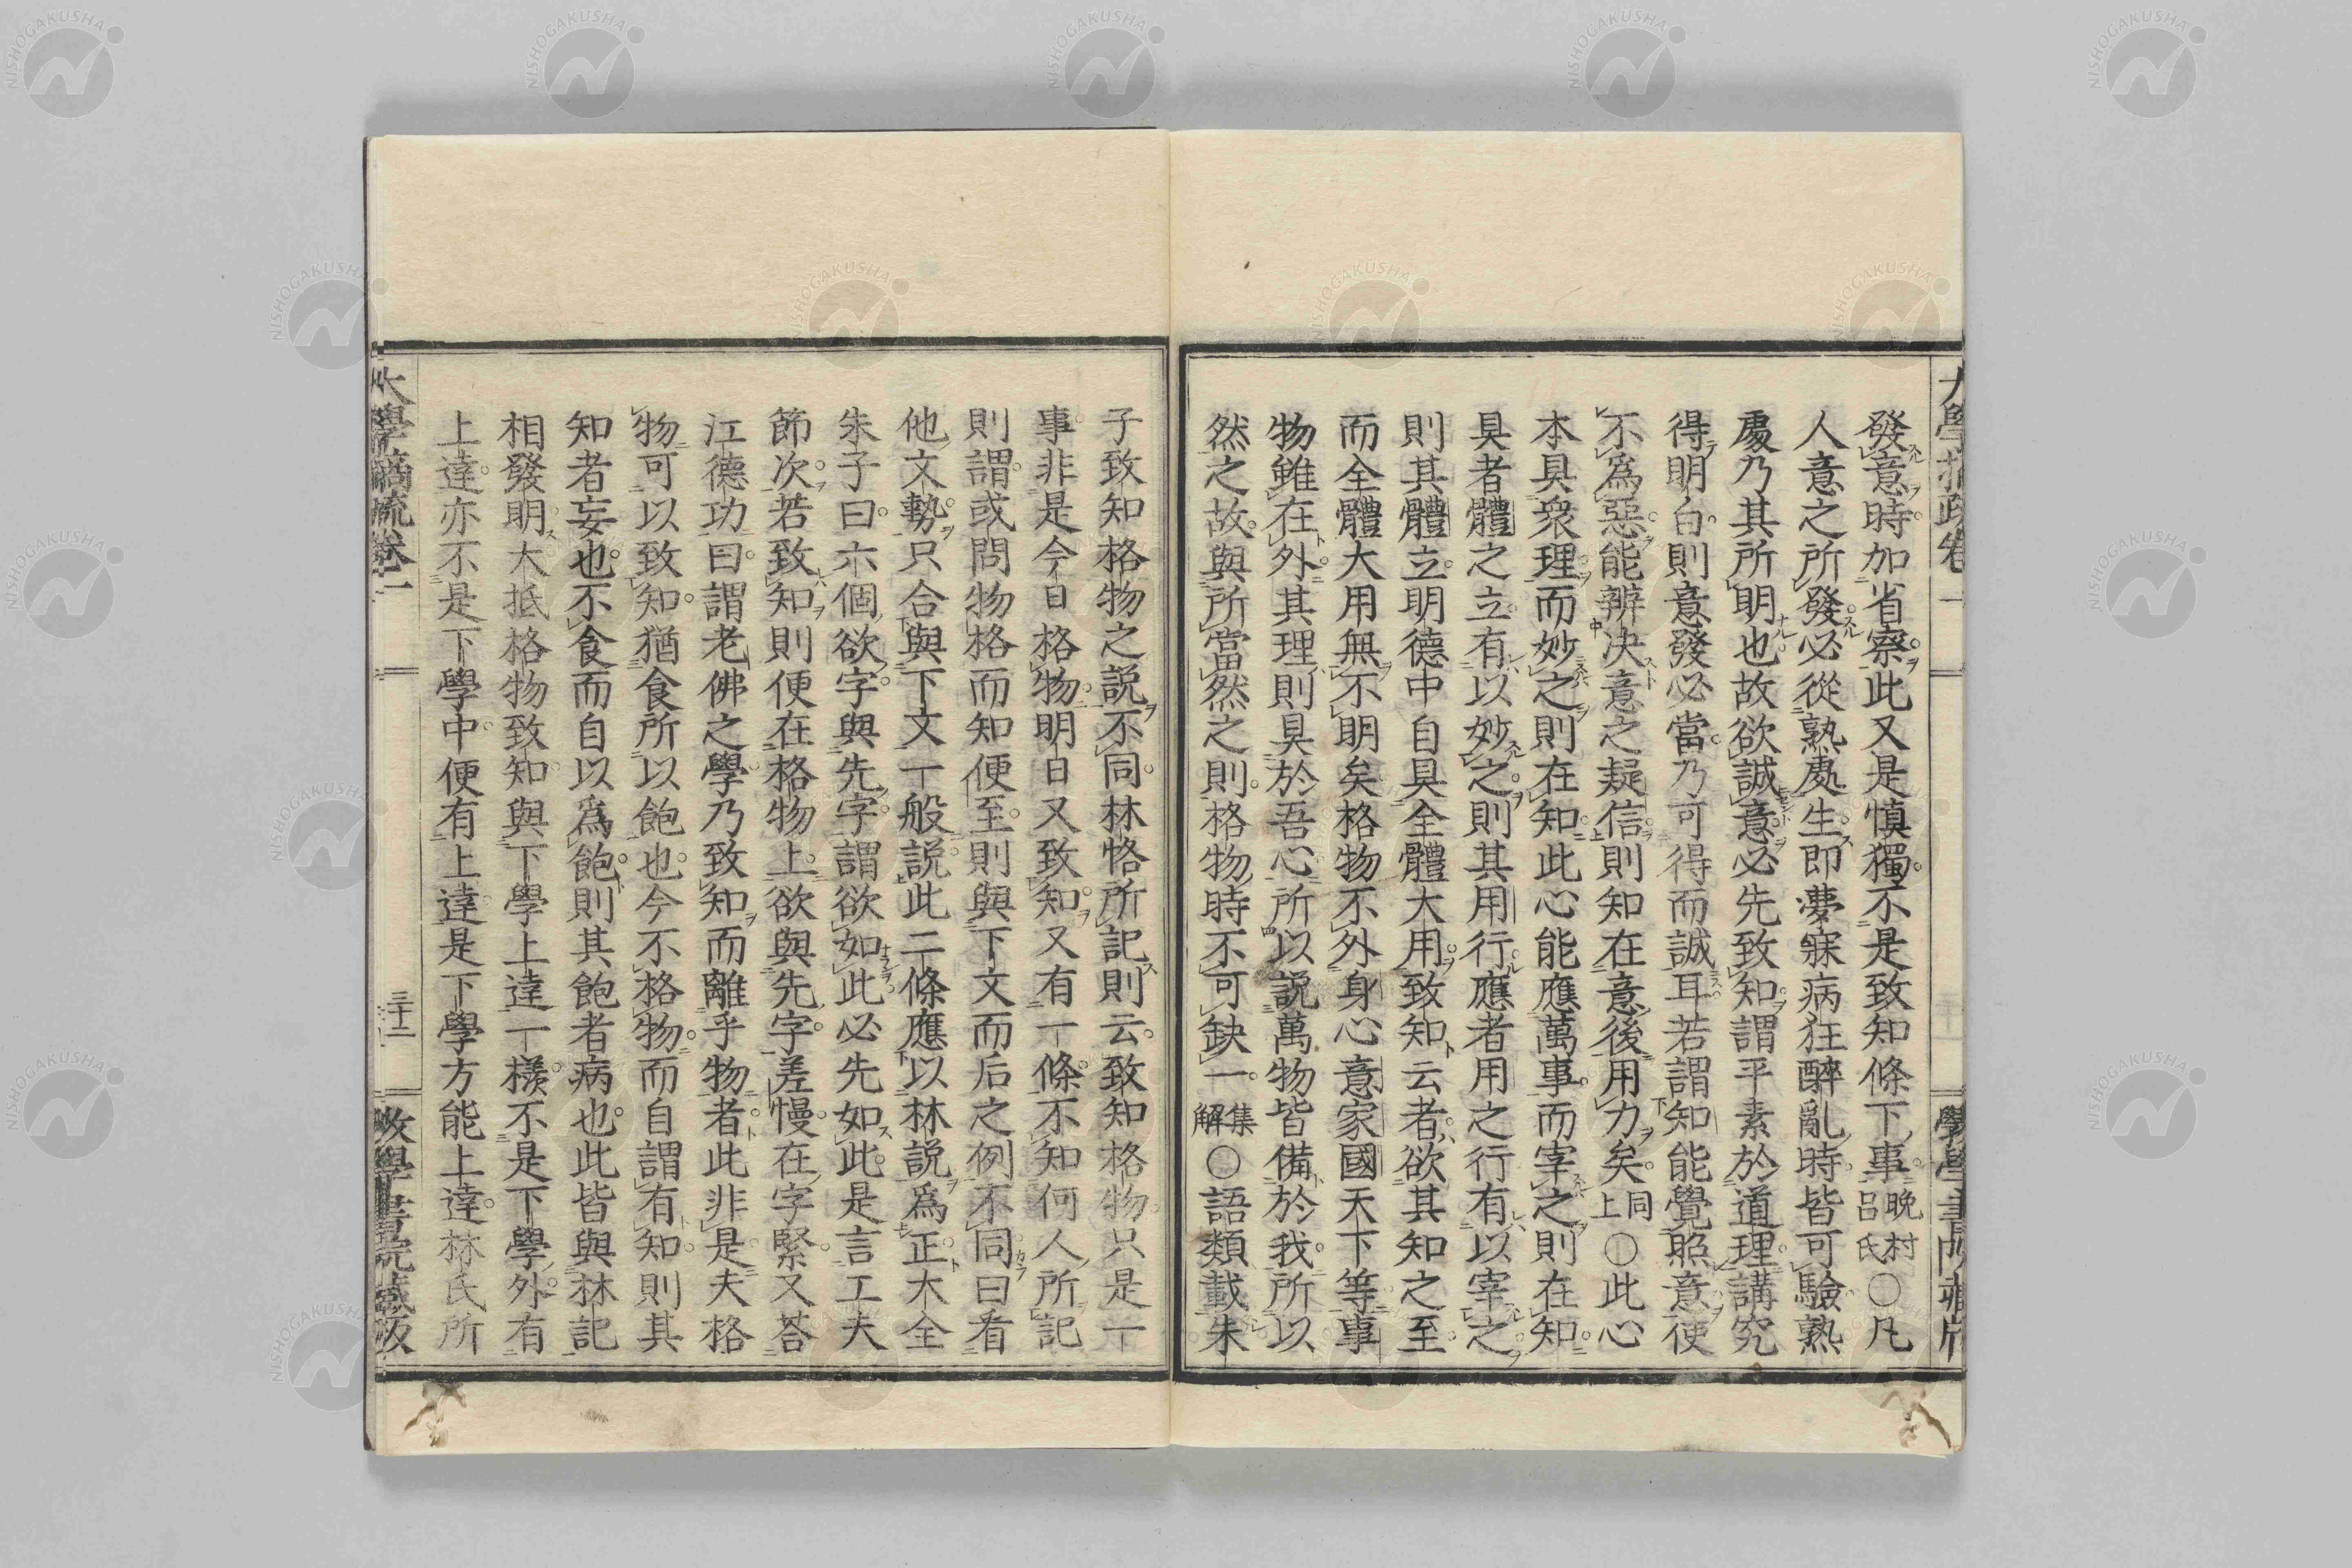 發意時加省察此又是愼獨不是致知條下事晚村呂氏○凡
人意之所發必從熟處生即夢寐病狂醉亂時皆可驗熟
處乃其所明也故欲誠意必先致知謂平素於道理講究
得明白則意發必當乃可得而誠耳若謂知能覺照意使
不爲惡能辨决意之疑信則知在意後用力矣同上○此心
本具衆理而妙之則在知此心能應萬事而宰之則在知
具者體之立有以妙之則其用行應者用之行有以宰之
則其體立明德中自具全體大用致知云者欲其知之至
而全體大用無不明矣格物不外身心意家國天下等事
物雖在外其理則具於吾心所以説萬物皆備於我所以
然之故與所當然之則格物時不可缺一集解○語類載朱
子致知格物之説不同林恪所記則云致知格物只是一
事非是今日格物明日又致知又有一條不知何人所記
則謂或問物格而知便至則與下文而后之例不同曰看
他文勢只合與下文一般説此二條應以林説爲正大全
朱子曰六個欲字與先字謂欲如此必先如此是言工夫
節次若致知則便在格物上欲與先字差慢在字緊又荅
江德功曰謂老佛之學乃致知而離乎物者此非是夫格
物可以致知猶食所以飽也今不格物而自謂有知則其
知者妄也不食而自以爲飽則其飽者病也此皆與林記
相發明大抵格物致知與下學上達一樣不是下學外有
上達亦不是下學中便有上達是下學方能上達林氏所
大學摘疏卷一
三十二
NISHOGAKUSHA